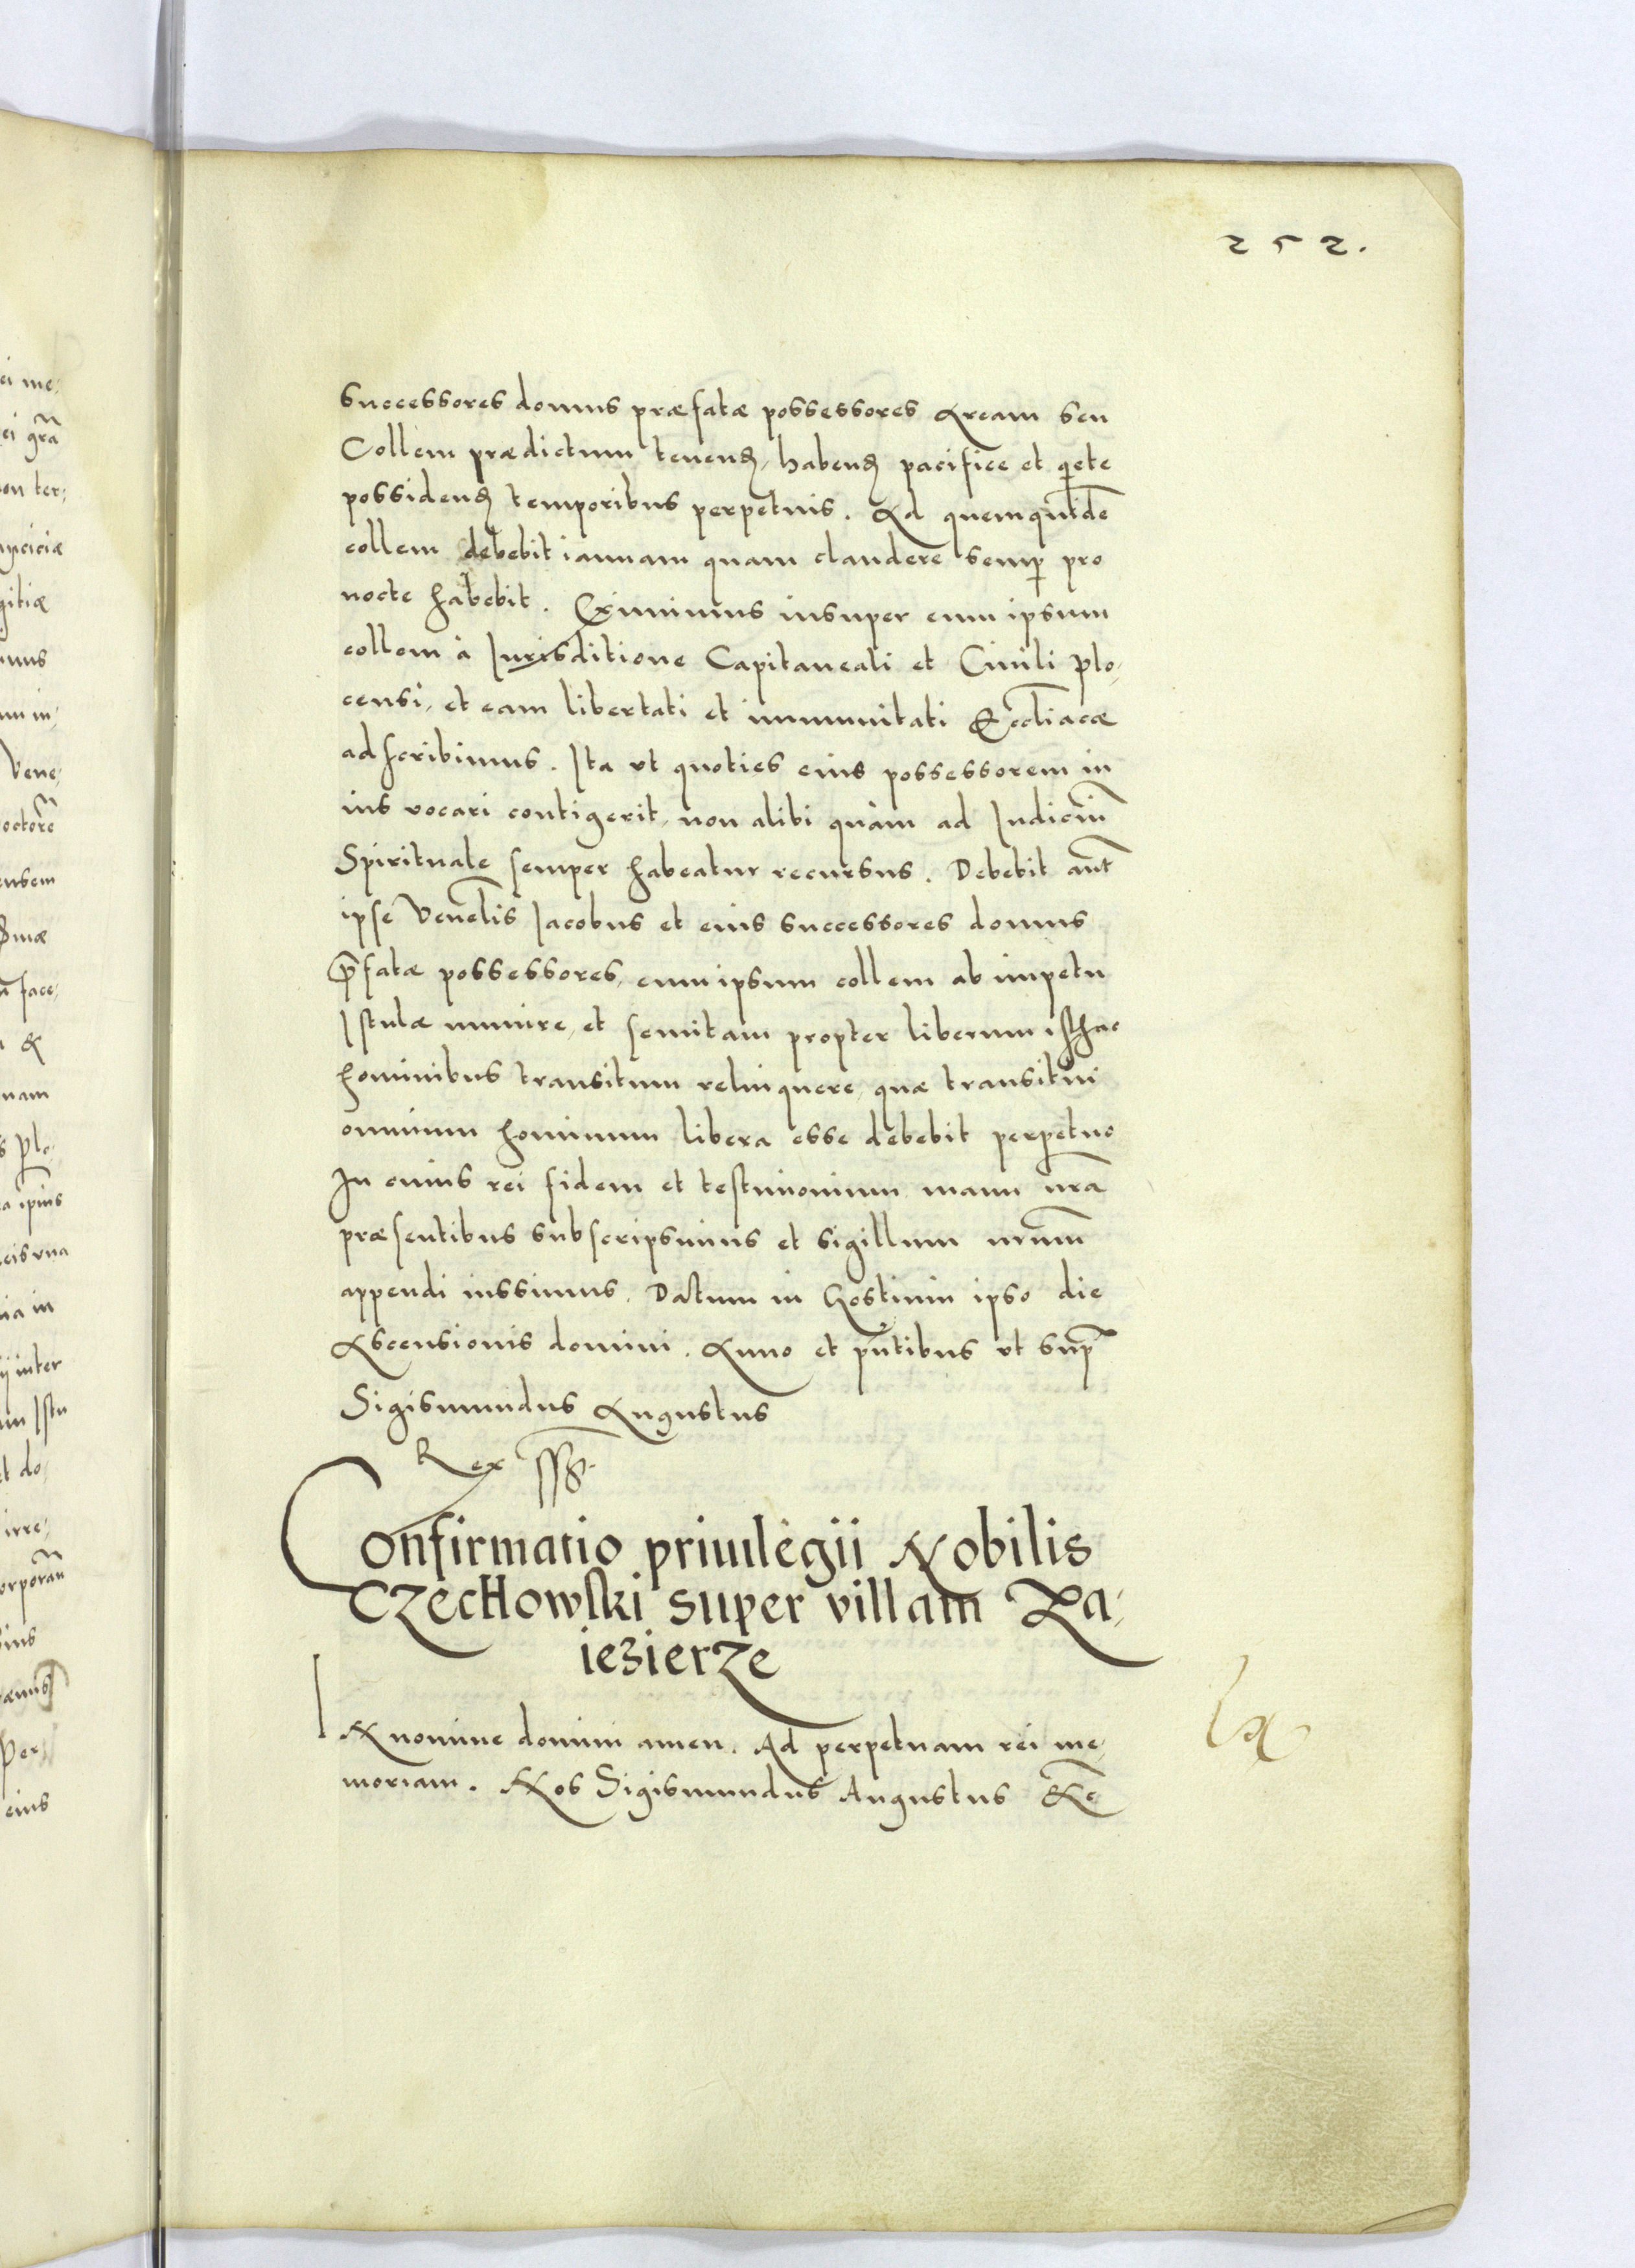 252.
successores domus præfatæ possessores Aream seu
Collem prædictum tenend, habend pacifice et qiete
possidend temporibus perpetuis. Ad quemquidē
collem debebit ianuam quam claudere semp pro
nocte habebit. Eximimus insuper eum ipsum
collem à Iurisditione Capitaneali et Ciuili Plo,
censi, et eam libertati et immunitati Ecclīacæ
adscribimus. Ita vt quoties eius possessorem in
ius vocari contigerit, non alibi quàm ad Iudiciū
Spirituale semper habeatur recursus. Debebit aūt
ipse Venēlis Iacobus et eius successores domus
p̄fatæ possessores, eum ipsum collem ab impetu
Istulæ munire, et semitam propter liberum isthac
hominibus transitum relinquere, quæ transitui
omnium hominum libera esse debebit perpetuo
In cuius rei fidem et testimonium manu nr̄a
præsentibus subscripsimus et sigillum nr̄um
appendi iussimus. Datum in Gostinin ipso die
Ascensionis domini. Anno et pn̄tibus vt sup̄
Sigismundus Augustus
Rex ss.
Confirmatio priuilegii Nobilis
Czechowski super villam Za,
iezierze
IN nomine domini amen. Ad perpetuam rei me,
moriam. Nos Sigismundus Augustus &c